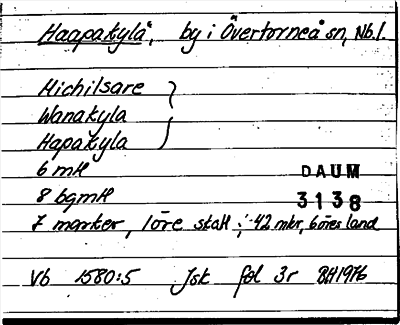 Haapakylä, by i Övertorneå sn, Nb.l.
Michilsare
Wanakyla
Hapakyla
6 mH
DAUM
8 bgmH
3138
7 marker, 1 öre skatt; 42 mkr, 6 öres land
Vb 1580:5 Jsk fol 3r BH1976